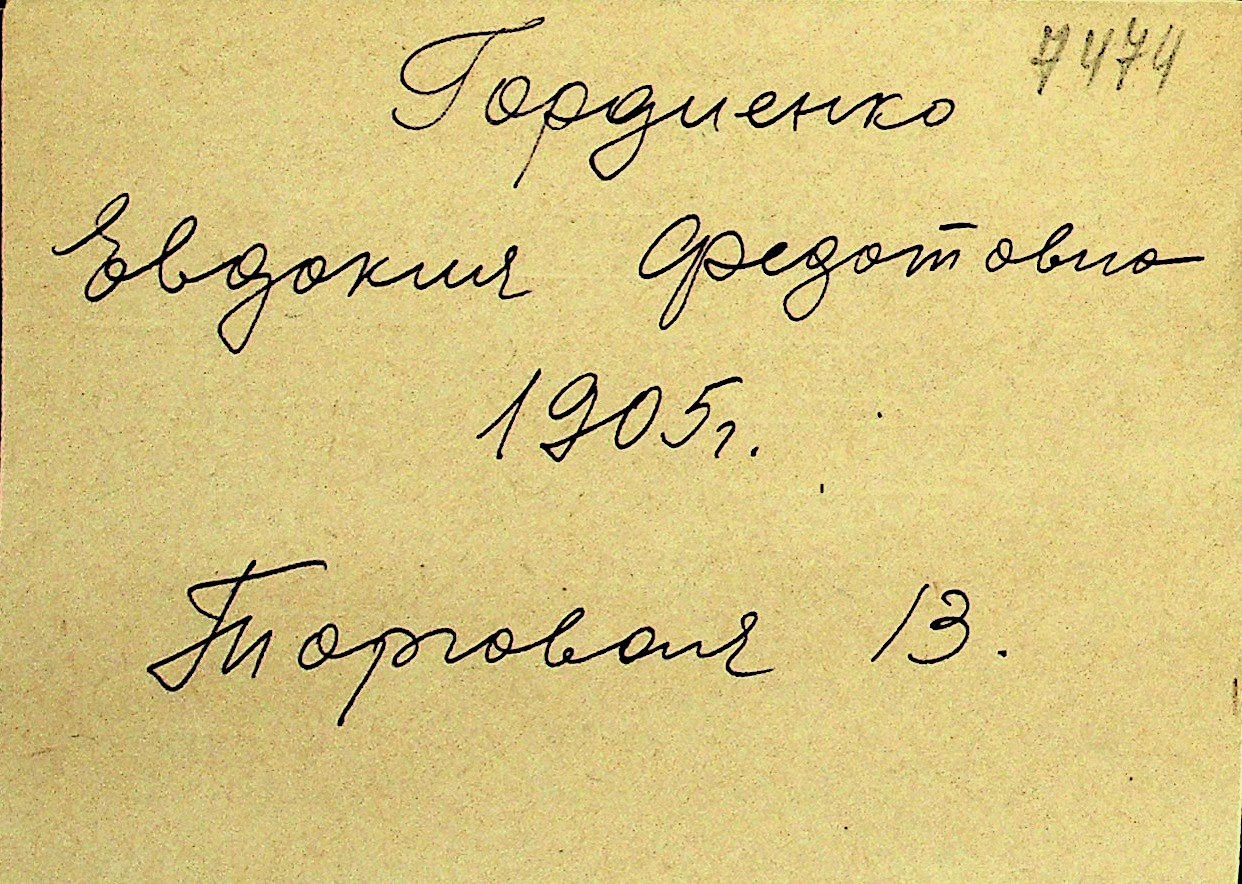 7474
Гордиенко
Евдокия Федотовна
1905г.
Торговая 13.